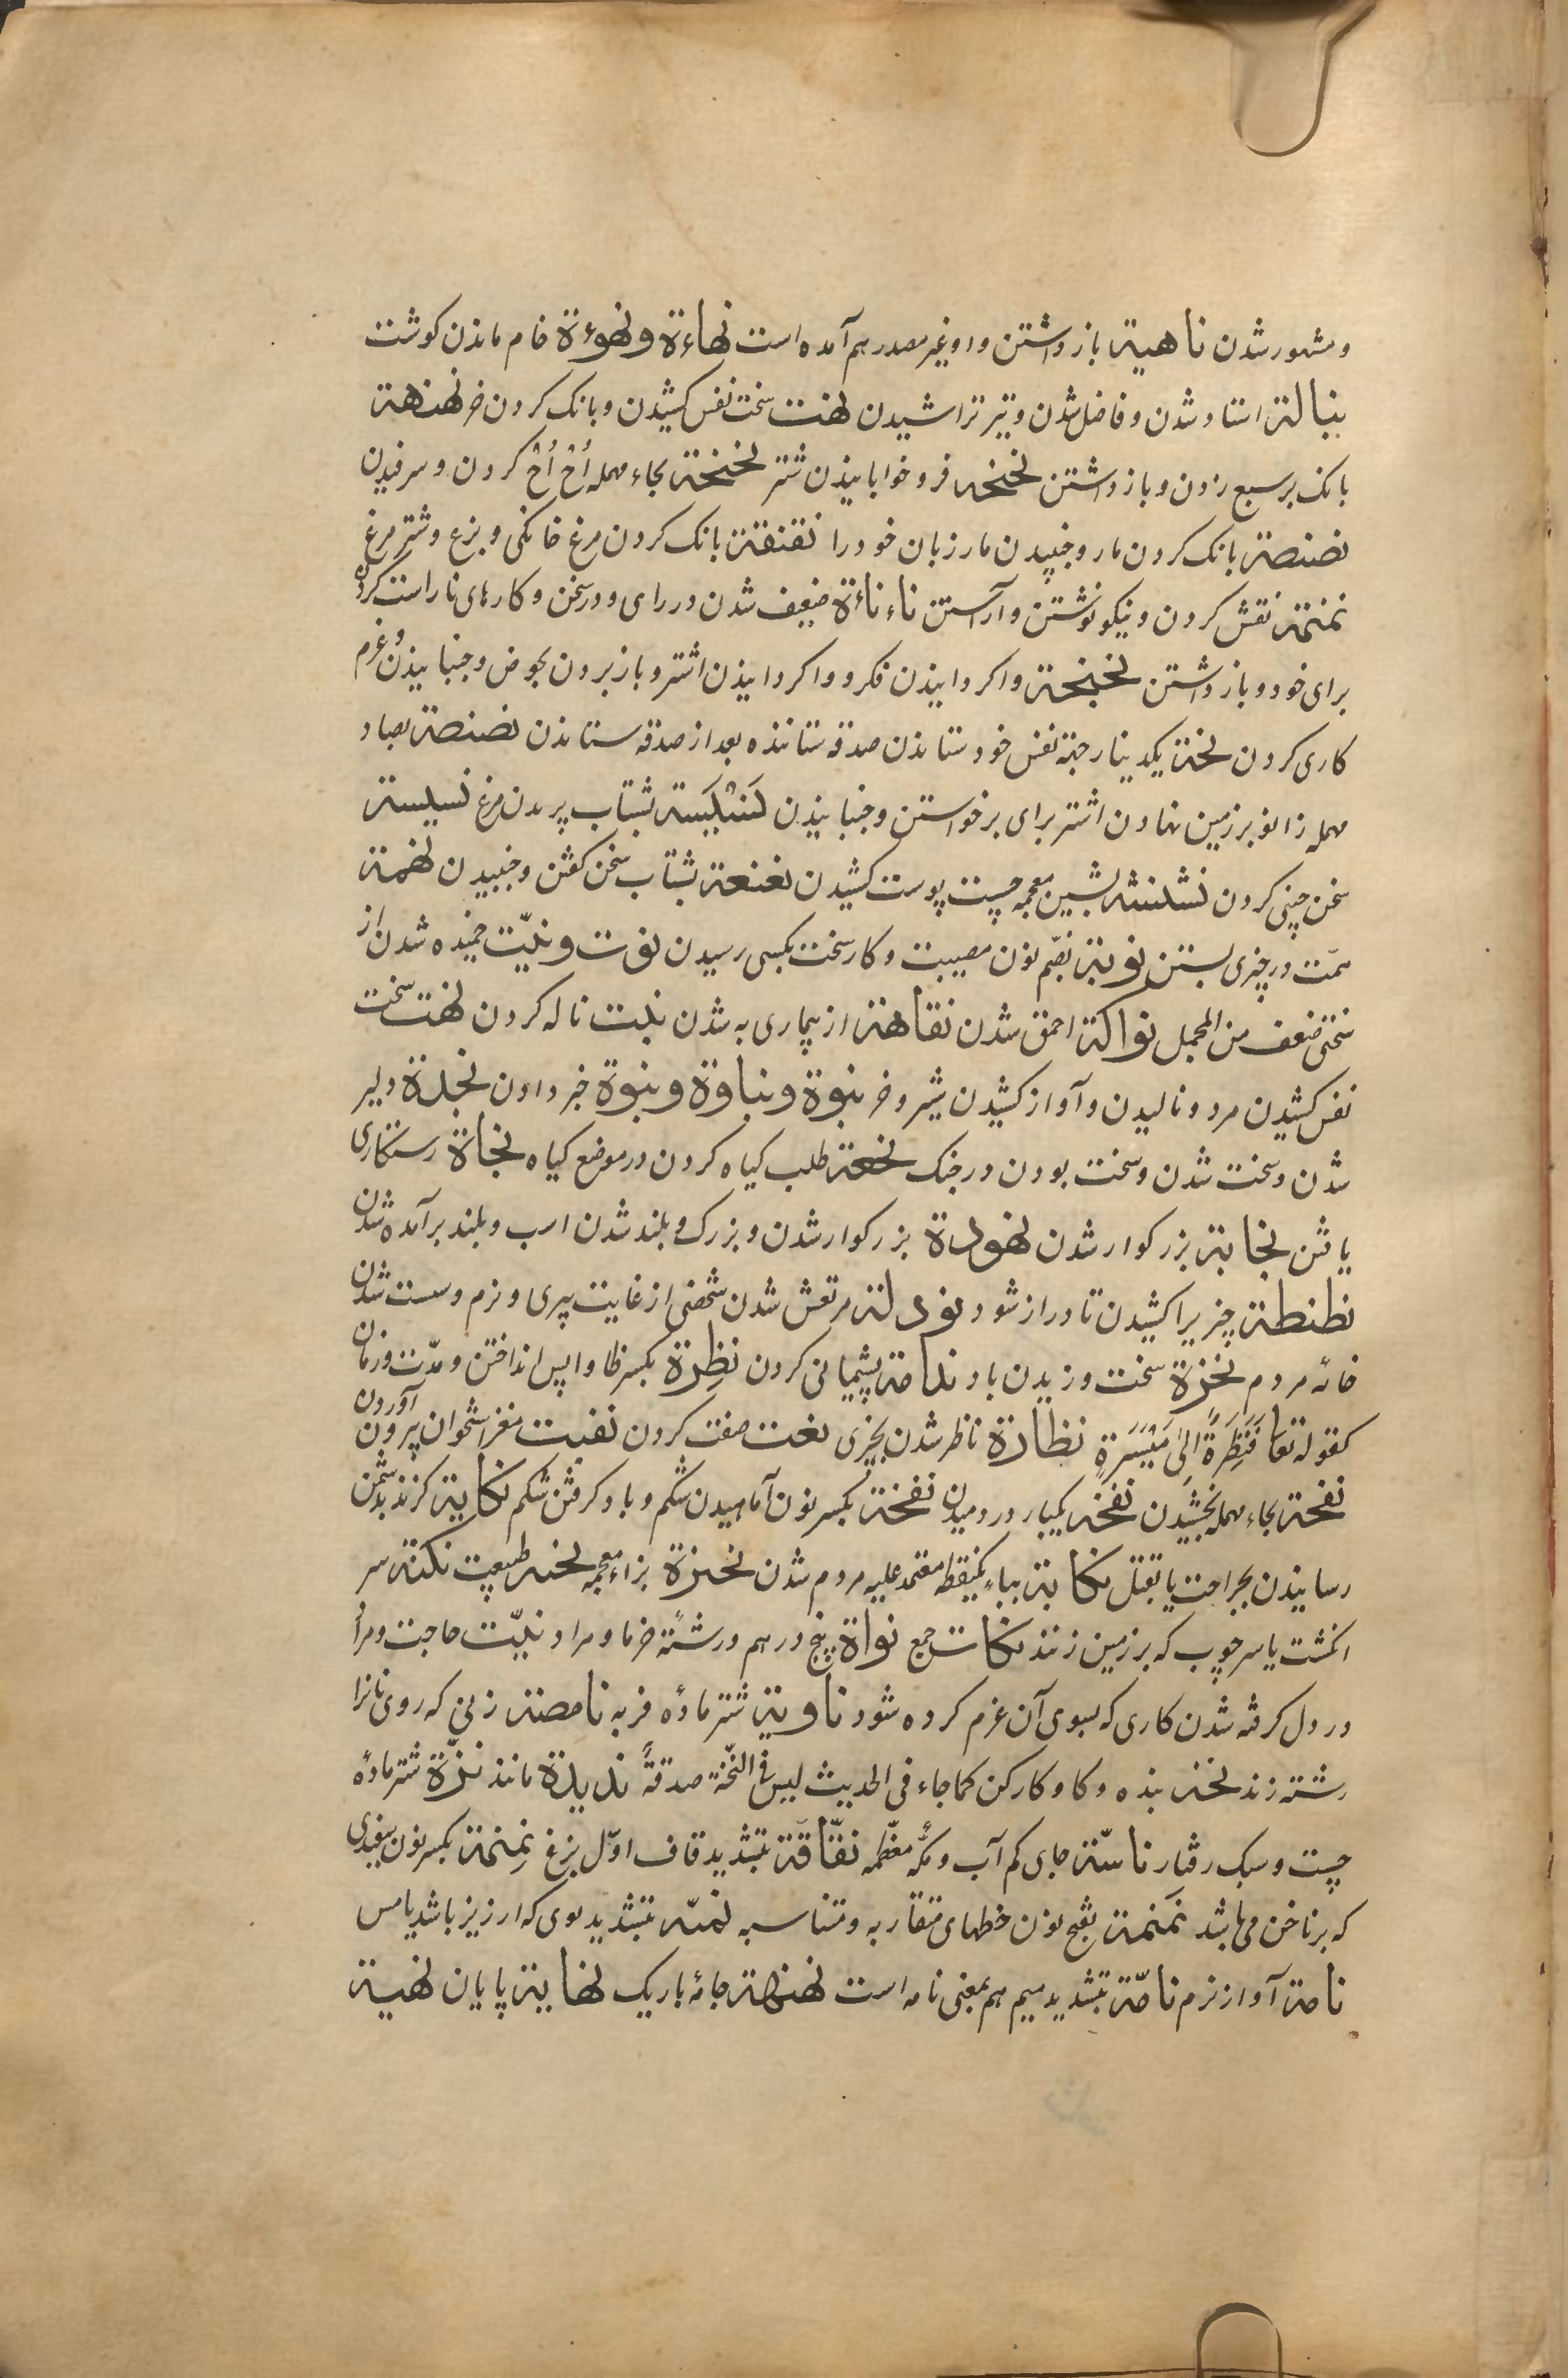 و مشهور شدن ناهية باز داشتن و او غیر مصدر هم آمده است نهاءة و نهوءة خام ماندن کوشت
نبالة استاد شدن و فاضل شدن و تیر تراشیدن نهت سخت نفس کشیدن و بانک کردن خر نهنهة
بانک بر سبع زدن و باز داشتن نخنخه فرو خوابانیدن شتر نحنحة بحاء مهمله اُحْ اُحْ کردن و سرفیدن
نضنضة بانک کردن مار و جنبیدن مار زبان خود را نقنقة بانک کردن مرغ خانکی و بزغ و شتر مرغ
نمنمة نقش کردن و نیکو نوشتن و آراستن ناءناءة ضعیف شدن در رای و در سخن و کارهای ناراست کردن
برای خود و باز داشتن نجنجة واکردانیدن فکر و واکردانیدن اشتر و باز بردن بحوض و جنبانیدن و عزم
کاری کردن نخة یکدینار جهة نفس خود ستاندن صدقه ستاننده بعد از صدقه ستاندن نصنصة بصاد
مهمله زانو بر زمین نهادن اشتر برای برخواستن و جنبانیدن بشتاب پریدن مرغ نسیسة
سخن چینی کردن نشنشه بشین معجمه چست پوست کشیدن نغنغة بشتاب سخن کفتن و جنبیدن نهمة
همّت در چیزی بستن نوبة بضّم نون مصیبت و کار سخت بکسی رسیدن نوت و نیّت خمیده شدن از
سختی ضعف من المجمل نواکة احمق شدن نقاهة از بیماری به شدن نیت ناله کردن نهت سخت
نفس کشیدن مرد و نالیدن و آواز کشیدن شیر و خر نبوة و نباوة و نبوة خبر دادن نجدة دلیر
شدن و سخت شدن و سخت بودن در جنک نجعة طلب کیاه کردن در موضع کیاه نجاة رستکاری
یافتن نجابة بزرکوار شدن نهودة بزرکوار شدن و بزرک و بلند شدن اسب و بلند برآمده شدن
نطنطة چیزیرا کشیدن تا دراز شود نودلة مرتعش شدن شخصی از غایت پیری و نرم و سست شدن
خانه مردم نخزة سخت وزیدن باد ندامة پشیمانی کردن نظِرة بکسر ظا واپس انداختن و مدّت و زمان
کقوله تعا فَنَظِرَةٌ اِلیٰ مَیْسَرَةٍ نظارة ناظر شدن بچیزی نعت صفت کردن نقیت مغز استخوان بیرون آوردن
نفحة بحاء مهمله بخشیدن نفخه یکبار در دمیدن نفخة بکسر نون آماهیدن شکم و باد کرفتن شکم نکایة کزند بدشمن
رسانیدن بجراحت یا بقتل نکابة بباء یکنقطه معتمد علیه مردم شدن نحیزة بزاء معجمه طبیعت نکتة سر
انکشت یا سر چوب که بر زمین زنند نکات جمع نواة پنج درهم و رشته خرما و مراد نیّت حاجت و مراد
در دل کرفته شدن کاری که بسوی آن عزم کرده شود ناویة شتر ماده فربه نامصة زنی که روی زنانرا
رشته زند نخه بنده و کاو کارکن کما جاء فی الحدیث لیس فی النّخة صدقةٌ ندیدة مانند نزّة شتر ماده
چست و سبک رفتار ناسّة جای کم آب و مکّه معظّمه نقّاقة بتشدید قاف اوّل بزغ نِمنِمة بکسر نون سفیدی
که بر ناخن می‌باشد نَمنَمة بفتح نون خطهای متقاربه و متناسبه نمّیّه بتشدید بوی که ارزیز باشد یا مس
نامة آواز نرم نامّة بتشدید میم هم بمعنی نامه است نهنهة جامه باریک نهایة پایان نهیة